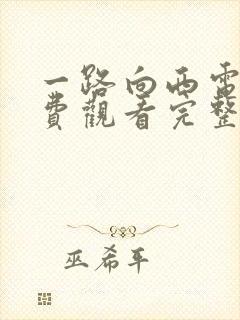 一路向西電
費觀看完整
巫希平